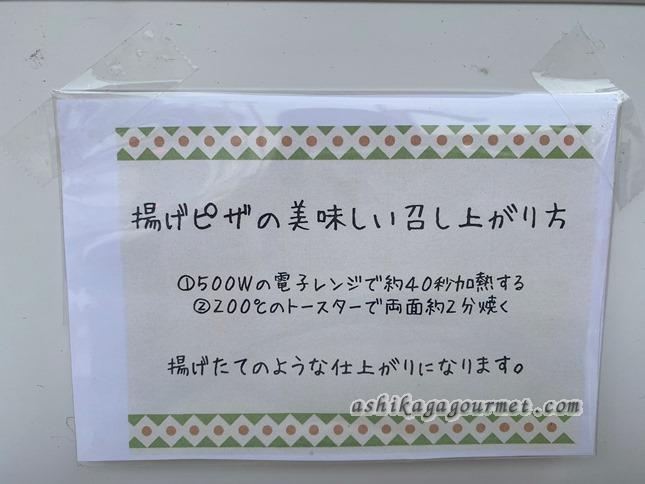 揚げピザの美味しい召し上がり方
①500Wの電子レンジで約40秒加熱する
②200℃のトースターで両面約2分焼く
揚げたてのような仕上がりになります。
ashikagagourmet.com